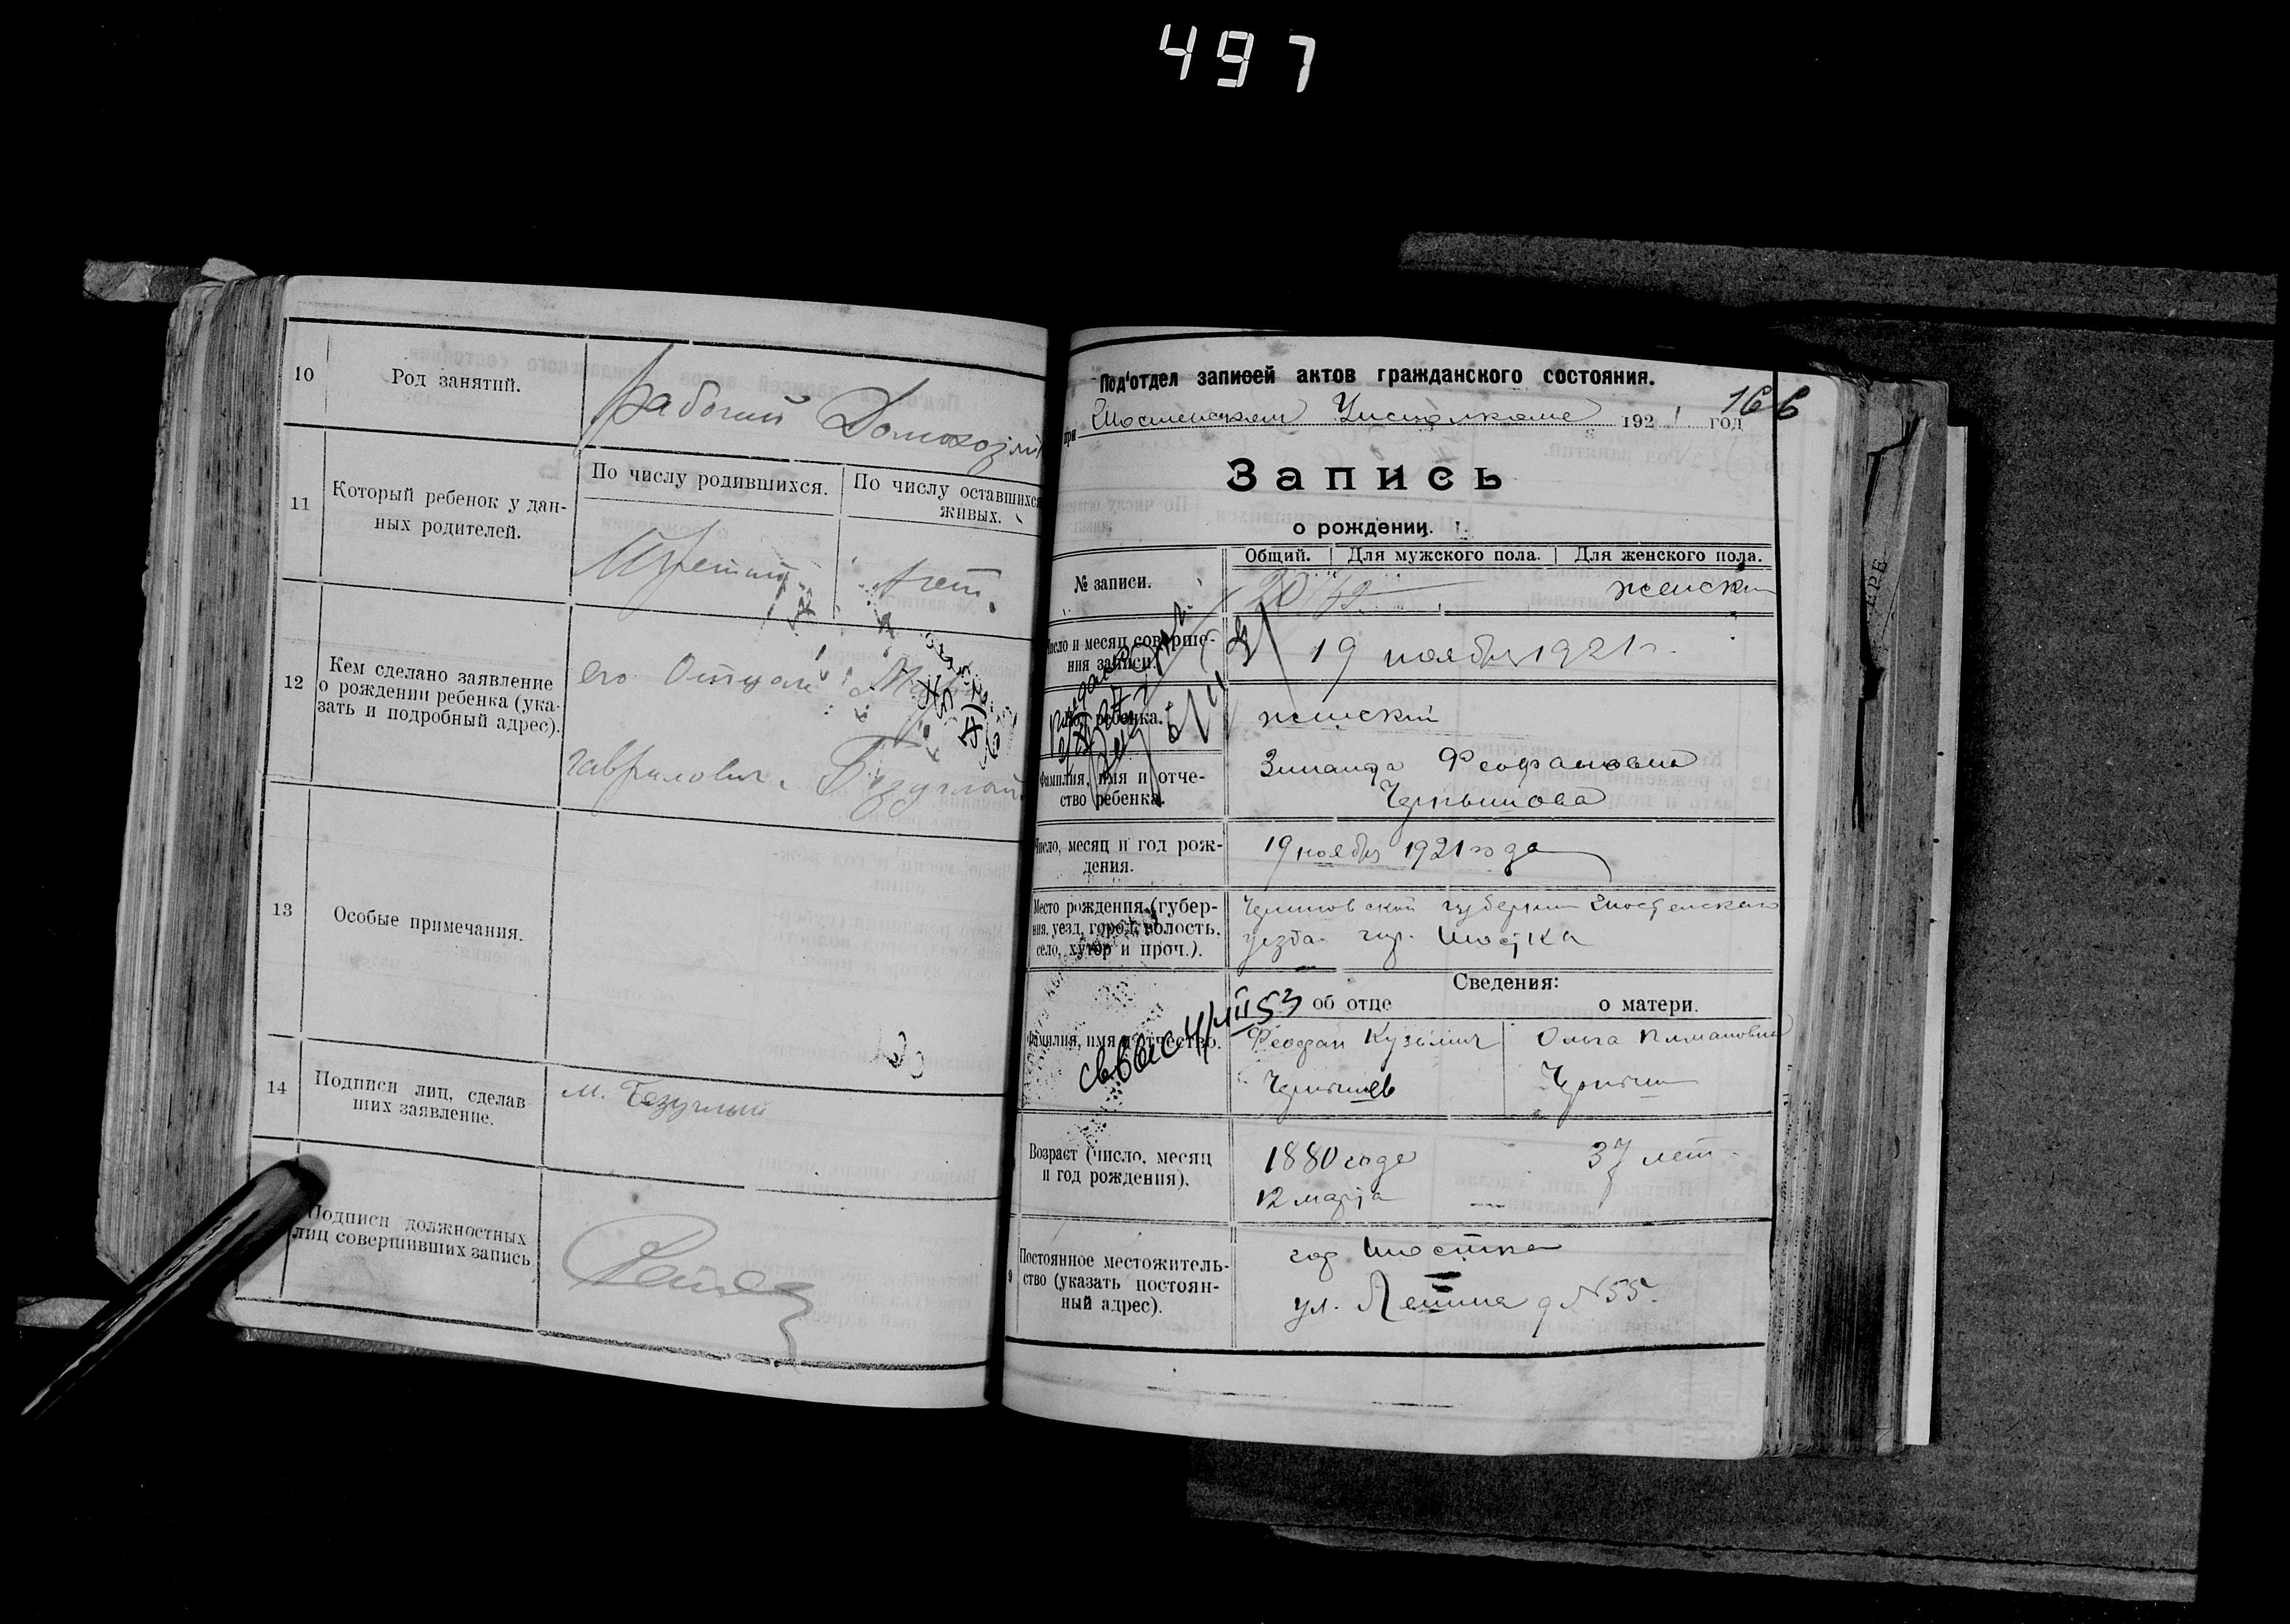 497
10 Род занятий. рабочий Домохозяй
11 Который ребенок у дан-
ных родителей.
По числу родившихся. По числу оставшихся
живых.
Третий
12 Кем сделано заявление
о рождении ребенка (ука-
зать и подробный адрес).
его Отцом
гаврилович. Безуглый
13 Особые примечания.
14 Подписи лиц, сделав
ших заявление.
М. Безуглый
Подписи должностных
лиц совершивших запись
166
Под'отдел записей актов гражданского состояния.
при Шостенском Исполкоме 1921 год
Запись
о рождении.
№ записи.
Общий. Для мужского пола. Для женского пола.
женски
Число и месяц соверше-
ния записи.
19 ноября 1921 г.
Пол ребенка.
женский
Фамилия, имя и отче-
ство ребенка.
Зинаида Феофановна
Чернышова
Число, месяц и год рож-
дения.
19 ноября 1921 года
Место рождения (губер-
ния, уезд, город, волость,
село, хутор и проч.).
Черниговской губернии Шостенского
уезда гор. Шостка
Сведения:
об отце о матери.
Фамилия, имя и отчество.
Феофан Кузьмич
Чернышев
Ольга
Возраст (число, месяц
и год рождения).
1880 года
12 марта
37 лет
9 Постоянное местожитель-
ство (указать постоян-
ный адрес).
гор Шостка
ул. Ленина д №55